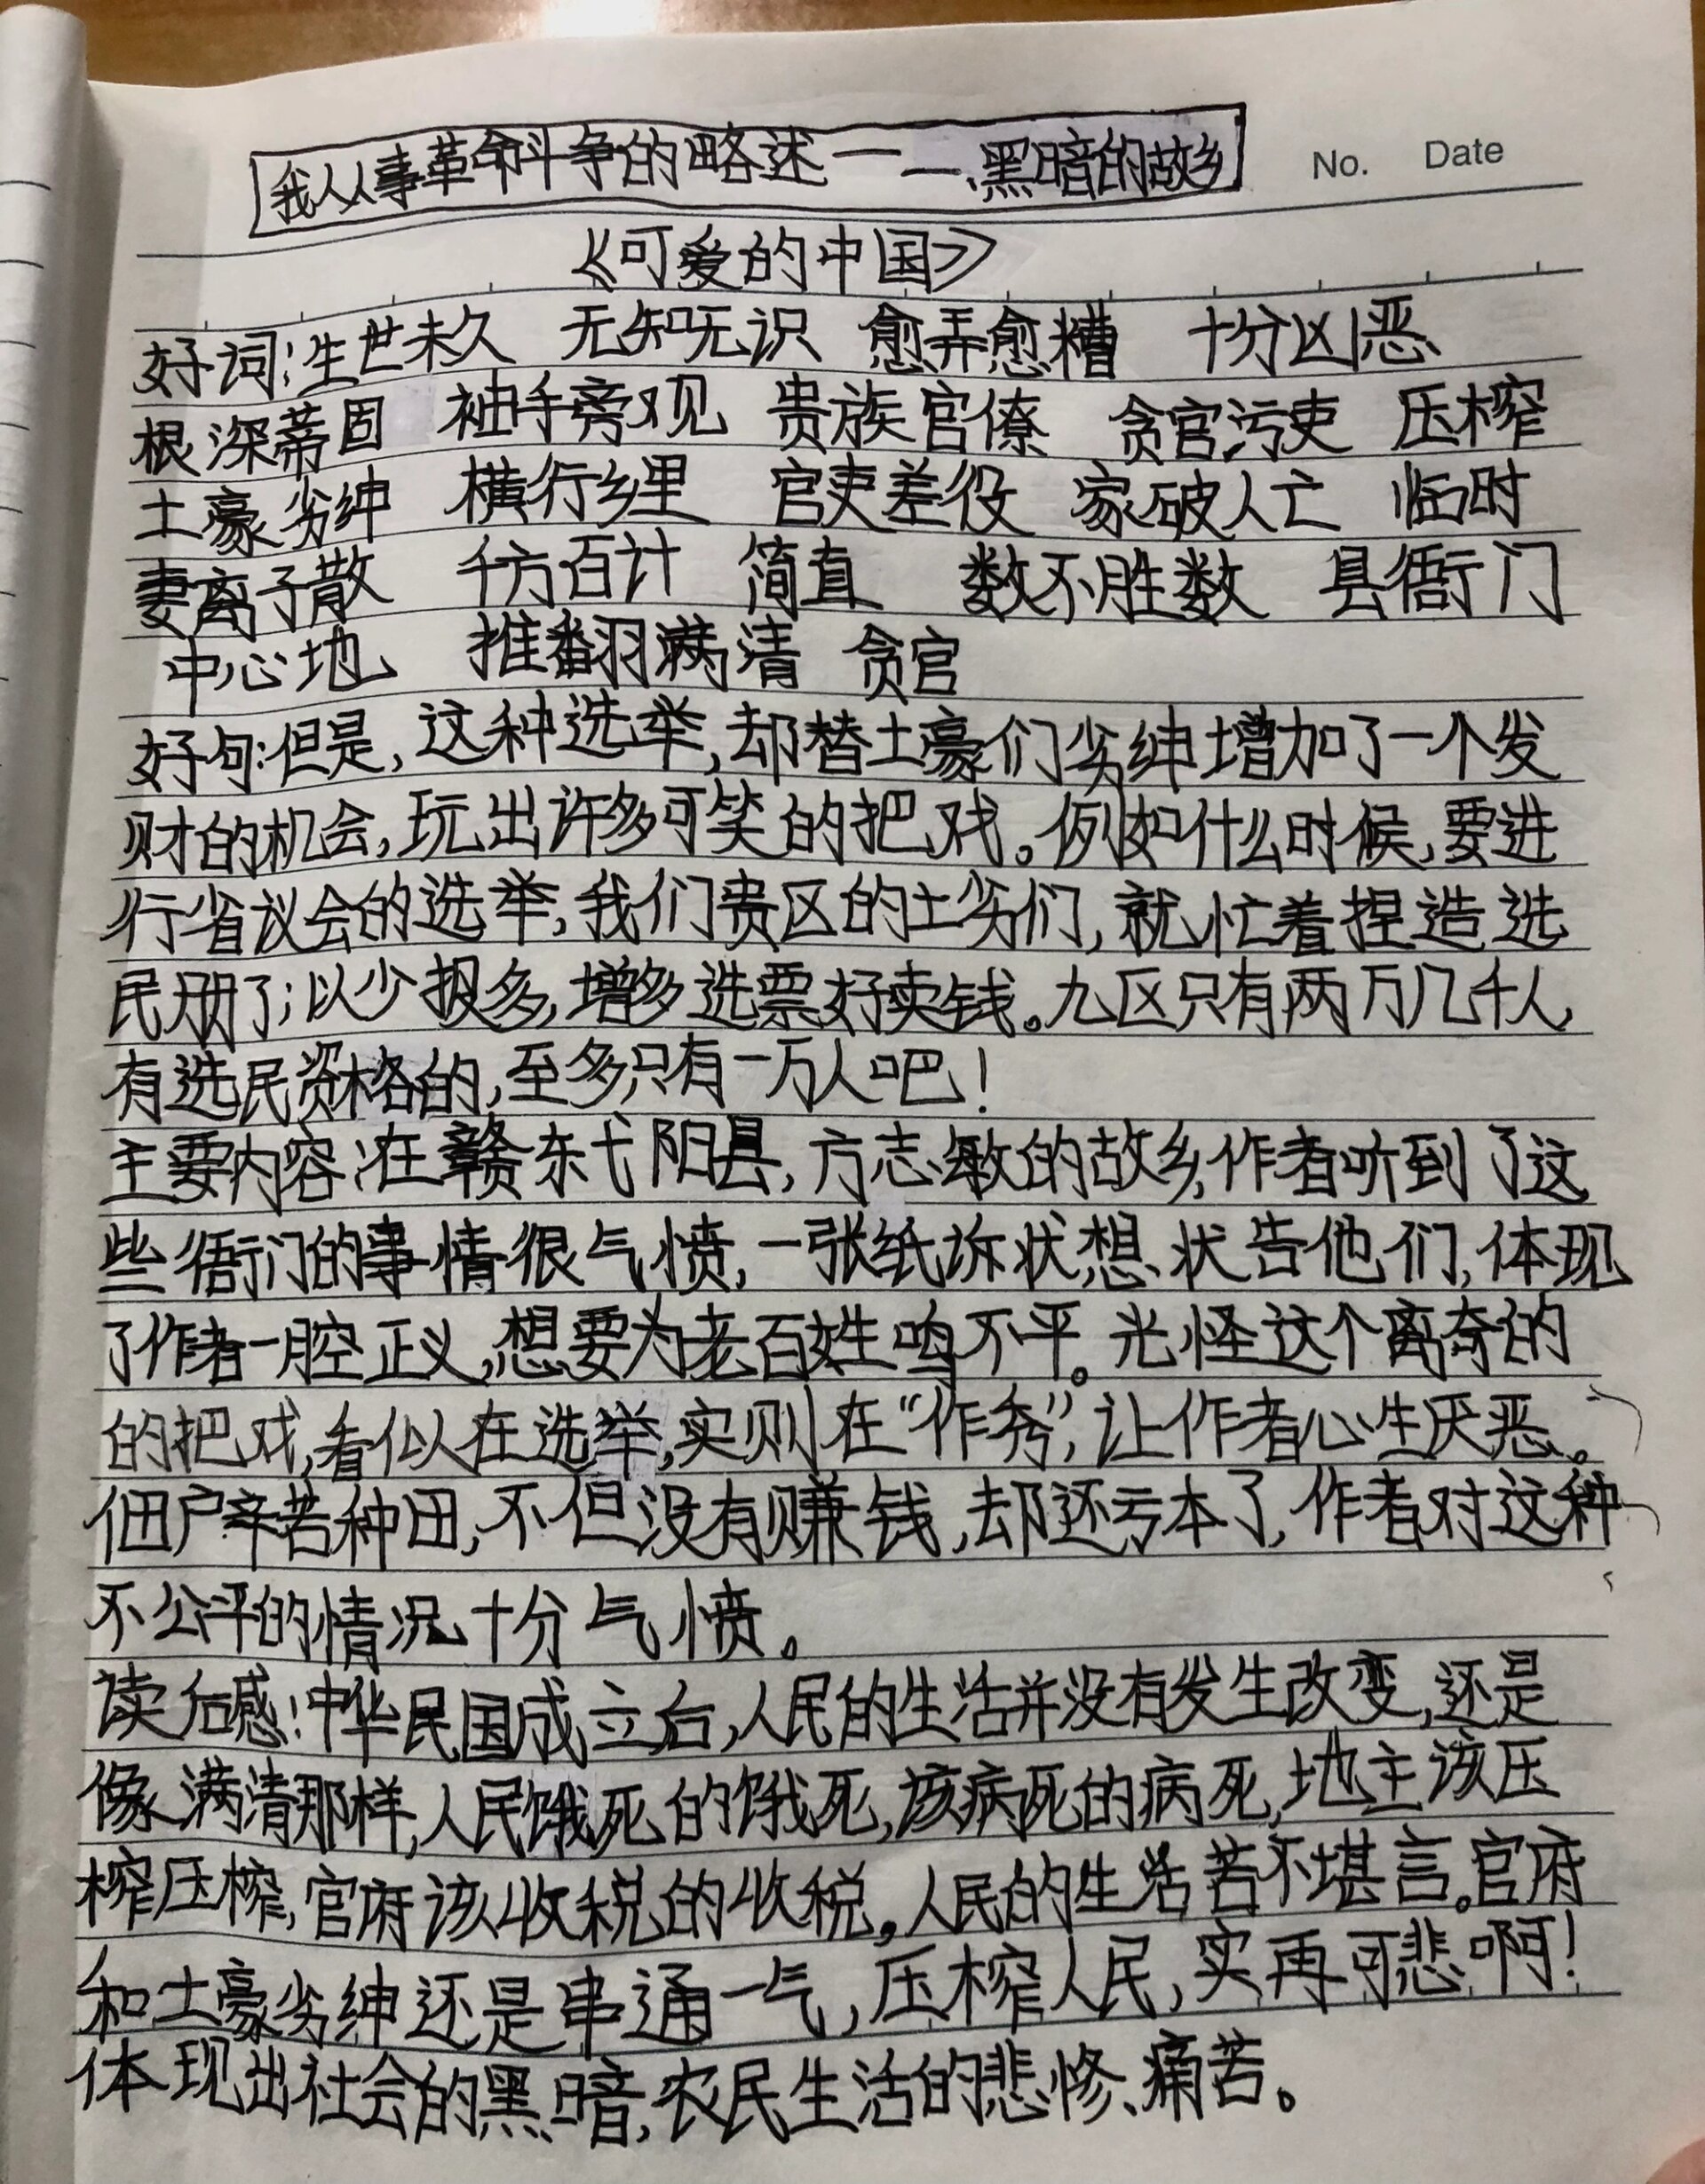 我从事革命斗争的略述一一、黑暗的故乡
No. Date
《可爱的中国》
好词:生世未久 无知无识 愈弄愈糟 十分凶恶
根深蒂固 袖手旁观 贵族官僚 贪官污吏 压榨
土豪劣绅 横行乡里 官吏差役 家破人亡 临时
妻离子散 千方百计 简直 数不胜数 县衙门
中心地 推翻满清 贪官
好句:但是,这种选举,却替土豪们劣绅增加了一个发
财的机会,玩出许多可笑的把戏。例如什么时候,要进
行省议会的选举,我们贵区的土劣们,就忙着捏造选
民册了;以少报多,增多选票好卖钱。九区只有两万几千人,
有选民资格的,至多只有一万人吧!
主要内容:在赣东弋阳县,方志敏的故乡,作者听到了这
些衙门的事情很气愤,一张纸诉状想状告他们,体现
了作者一腔正义,想要为老百姓鸣不平。光怪这个离奇的
的把戏,看似在选举,实则在“作秀”,让作者心生厌恶。
佃户辛苦种田,不但没有赚钱,却还亏本了,作者对这种
不公平的情况十分气愤。
读后感:中华民国成立后,人民的生活并没有发生改变,还是
像满清那样,人民饿死的饿死,该病死的病死,地主该压
榨压榨,官府该收税的收税。人民的生活苦不堪言。官府
和土豪劣绅还是串通一气,压榨人民,实再可悲啊!
体现出社会的黑暗,农民生活的悲惨、痛苦。